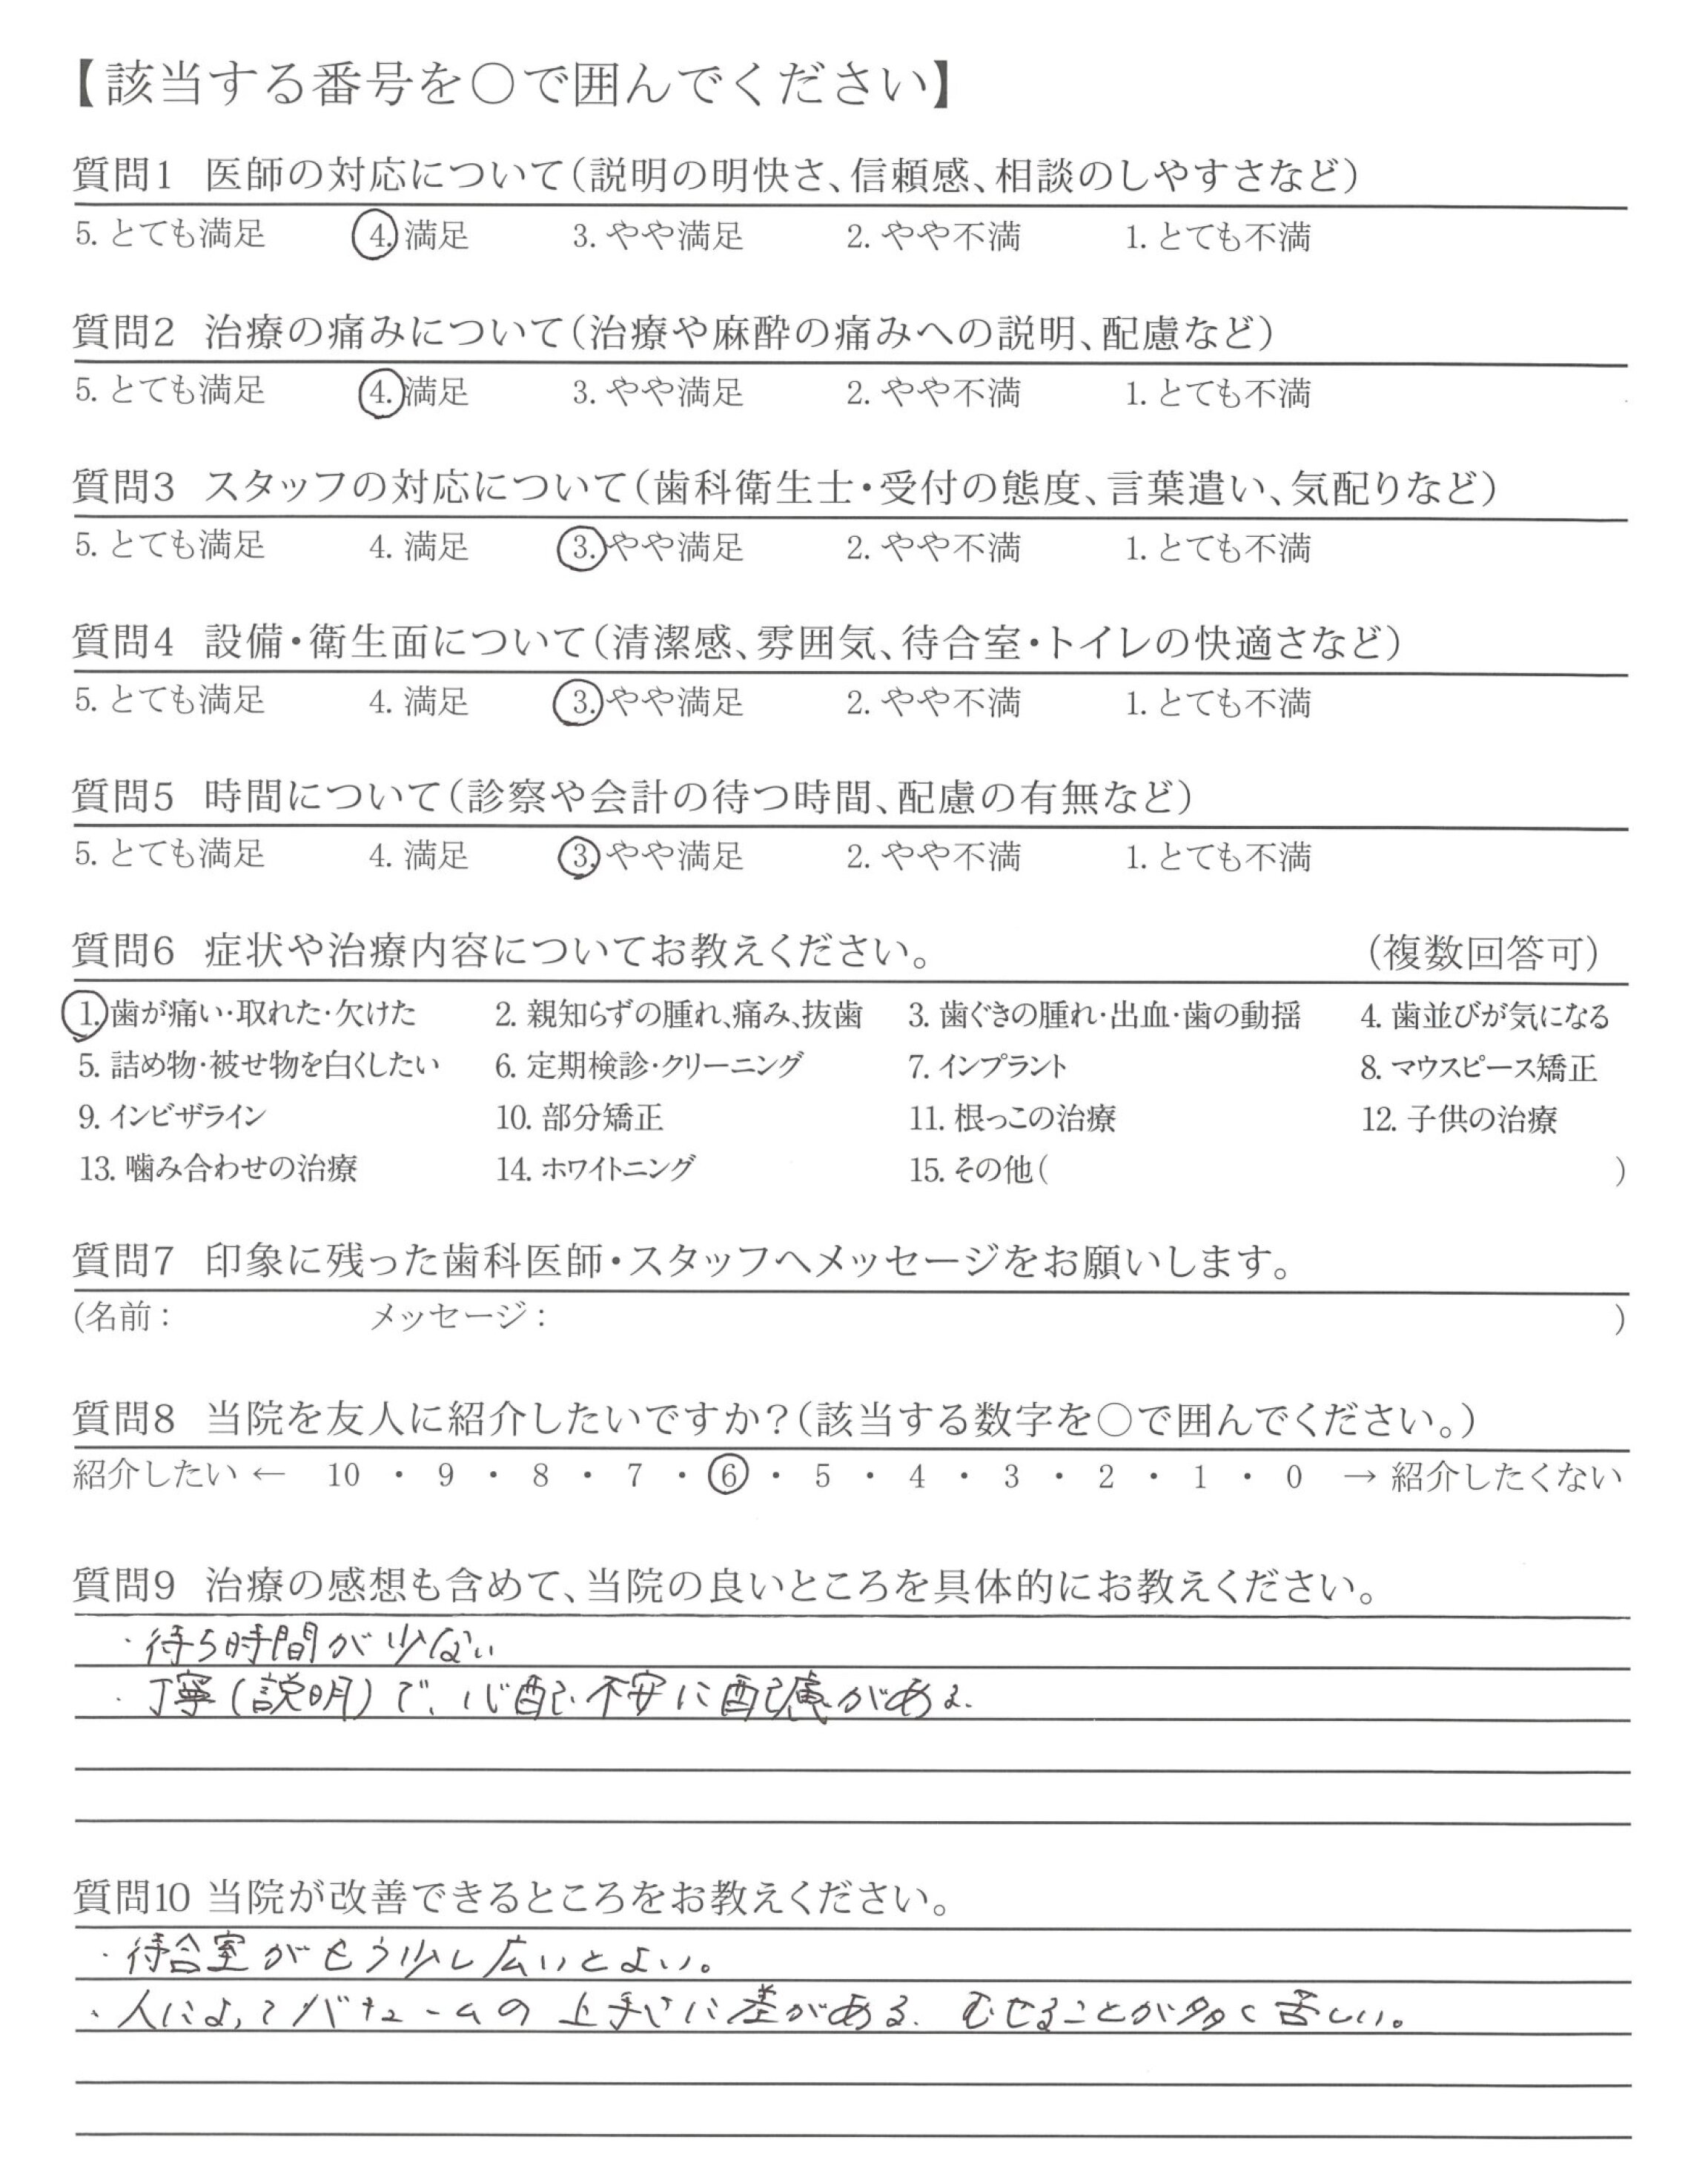 【該当する番号を○で囲んでください】
質問1 医師の対応について(説明の明快さ、信頼感、相談のしやすさなど)
5. とても満足 4. 満足 3. やや満足 2. やや不満 1. とても不満
質問2 治療の痛みについて(治療や麻酔の痛みへの説明、配慮など)
5. とても満足 4. 満足 3. やや満足 2. やや不満 1. とても不満
質問3 スタッフの対応について(歯科衛生士・受付の態度、言葉遣い、気配りなど)
5. とても満足 4. 満足 3. やや満足 2. やや不満 1. とても不満
質問4 設備・衛生面について(清潔感、雰囲気、待合室・トイレの快適さなど)
5. とても満足 4. 満足 3. やや満足 2. やや不満 1. とても不満
質問5 時間について(診察や会計の待つ時間、配慮の有無など)
5. とても満足 4. 満足 3. やや満足 2. やや不満 1. とても不満
質問6 症状や治療内容についてお教えください。 (複数回答可)
1. 歯が痛い・取れた・欠けた 2. 親知らずの腫れ、痛み、抜歯 3. 歯ぐきの腫れ・出血・歯の動揺 4. 歯並びが気になる
5. 詰め物・被せ物を白くしたい 6. 定期検診・クリーニング 7. インプラント 8. マウスピース矯正
9. インビザライン 10. 部分矯正 11. 根っこの治療 12. 子供の治療
13. 噛み合わせの治療 14. ホワイトニング 15. その他( )
質問7 印象に残った歯科医師・スタッフへメッセージをお願いします。
(名前: メッセージ: )
質問8 当院を友人に紹介したいですか?(該当する数字を○で囲んでください。)
紹介したい ← 10 ・ 9 ・ 8 ・ 7 ・ 6 ・ 5 ・ 4 ・ 3 ・ 2 ・ 1 ・ 0 → 紹介したくない
質問9 治療の感想も含めて、当院の良いところを具体的にお教えください。
・待ち時間が少ない
・丁寧(説明)で、心配、不安に配慮がある。
質問10 当院が改善できるところをお教えください。
・待合室がもう少し広いとよい。
・人によってバキュームの上手さに差がある。むせることが多く苦しい。